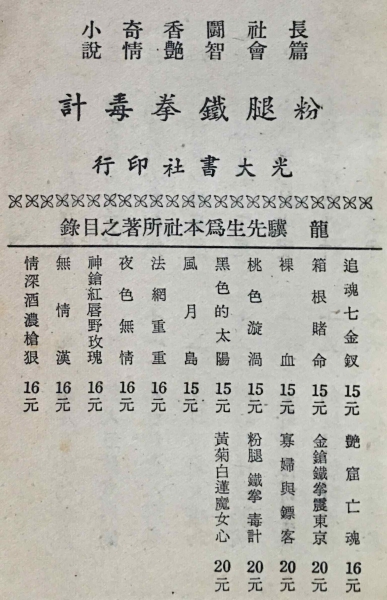 長篇
社會
鬪智
香艷
奇情
小說
粉腿鐵拳毒計
光大書社印行
龍驥先生爲本社所著之目錄
追魂七金釵 15元
箱根賭命 15元
裸血 15元
桃色漩渦 15元
黑色的太陽 15元
風月島 15元
法網重重 16元
夜色無情 16元
神鎗紅唇野玫瑰 16元
無情漢 16元
情深酒濃槍狠 16元
艷窟亡魂 16元
金鎗鐵拳震東京 20元
寡婦與鏢客 20元
粉腿鐵拳毒計 20元
黃菊白蓮魔女心 20元